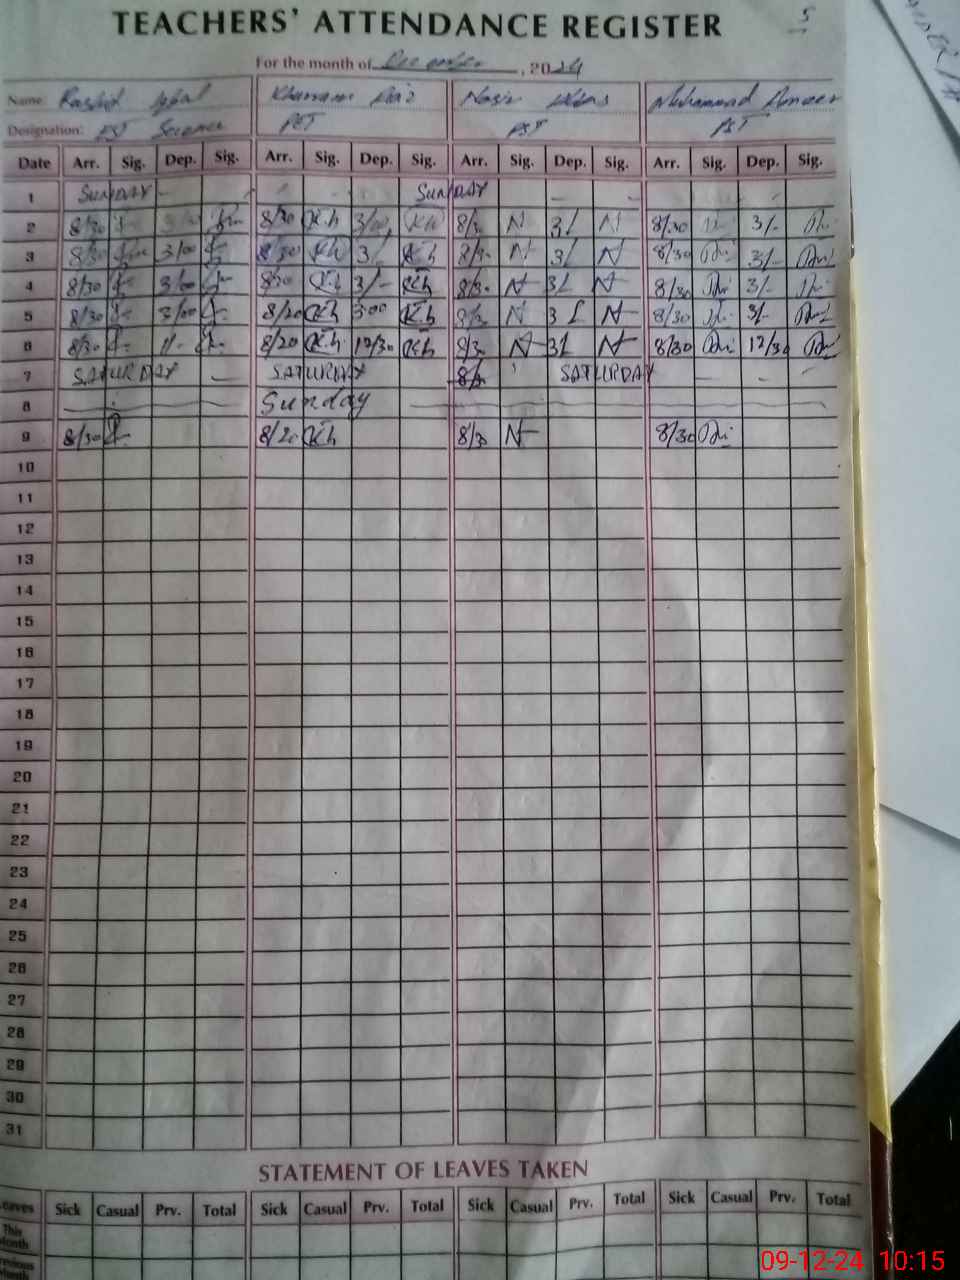 5
TEACHERS' ATTENDANCE REGISTER
For the month of December, 2024
Name: Rashid Iqbal Khurram Nasir Muhammad Ameer
Designation: EST Science PET PST PST
Date Arr. Sig. Dep. Sig. Arr. Sig. Dep. Sig. Arr. Sig. Dep. Sig. Arr. Sig. Dep. Sig.
1 SUNDAY SUNDAY
2 8/30 8/30 Kh 3/00 Kh 8/30 N 3/ N 8/30 3/-
3 8/30 3/00 8/30 Kh 3/ Kh 8/30 N 3/ N 8/30 3/-
4 8/30 3/00 8/30 Kh 3/- Kh 8/30 N 3/ N 8/30 3/-
5 8/30 3/00 8/20 Kh 3/00 Kh 8/30 N 3/ N 8/30 3/-
6 8/30 8/20 Kh 12/30 Kh 8/30 N 3/ N 8/30 12/30
7 SATURDAY SATURDAY SATURDAY
8 Sunday
9 8/30 8/20 Kh 8/30 N 8/30
10
11
12
13
14
15
16
17
18
19
20
21
22
23
24
25
26
27
28
29
30
31
STATEMENT OF LEAVES TAKEN
Leaves Sick Casual Prv. Total Sick Casual Prv. Total Sick Casual Prv. Total Sick Casual Prv. Total
This
Month
Previous
Month
09-12-24 10:15